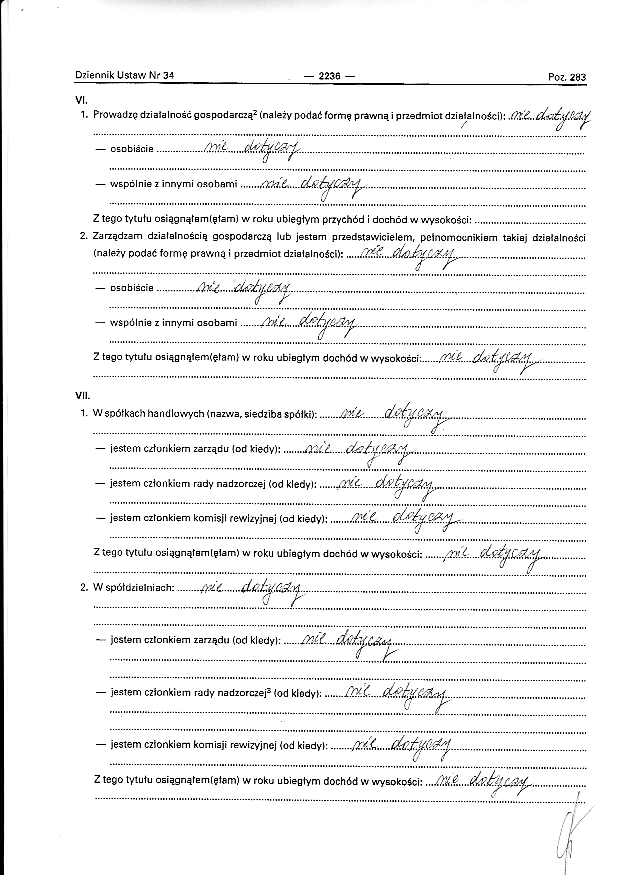 Dziennik Ustaw Nr 34 — 2236 — Poz. 283
VI.
1. Prowadzę działalność gospodarczą² (należy podać formę prawną i przedmiot działalności): nie dotyczy
— osobiście nie dotyczy
— wspólnie z innymi osobami nie dotyczy
Z tego tytułu osiągnąłem(ęłam) w roku ubiegłym przychód i dochód w wysokości:
2. Zarządzam działalnością gospodarczą lub jestem przedstawicielem, pełnomocnikiem takiej działalności
(należy podać formę prawną i przedmiot działalności): nie dotyczy
— osobiście nie dotyczy
— wspólnie z innymi osobami nie dotyczy
Z tego tytułu osiągnąłem(ęłam) w roku ubiegłym dochód w wysokości: nie dotyczy
VII.
1. W spółkach handlowych (nazwa, siedziba spółki): nie dotyczy
— jestem członkiem zarządu (od kiedy): nie dotyczy
— jestem członkiem rady nadzorczej (od kiedy): nie dotyczy
— jestem członkiem komisji rewizyjnej (od kiedy): nie dotyczy
Z tego tytułu osiągnąłem(ęłam) w roku ubiegłym dochód w wysokości: nie dotyczy
2. W spółdzielniach: nie dotyczy
— jestem członkiem zarządu (od kiedy): nie dotyczy
— jestem członkiem rady nadzorczej³ (od kiedy): nie dotyczy
— jestem członkiem komisji rewizyjnej (od kiedy): nie dotyczy
Z tego tytułu osiągnąłem(ęłam) w roku ubiegłym dochód w wysokości: nie dotyczy